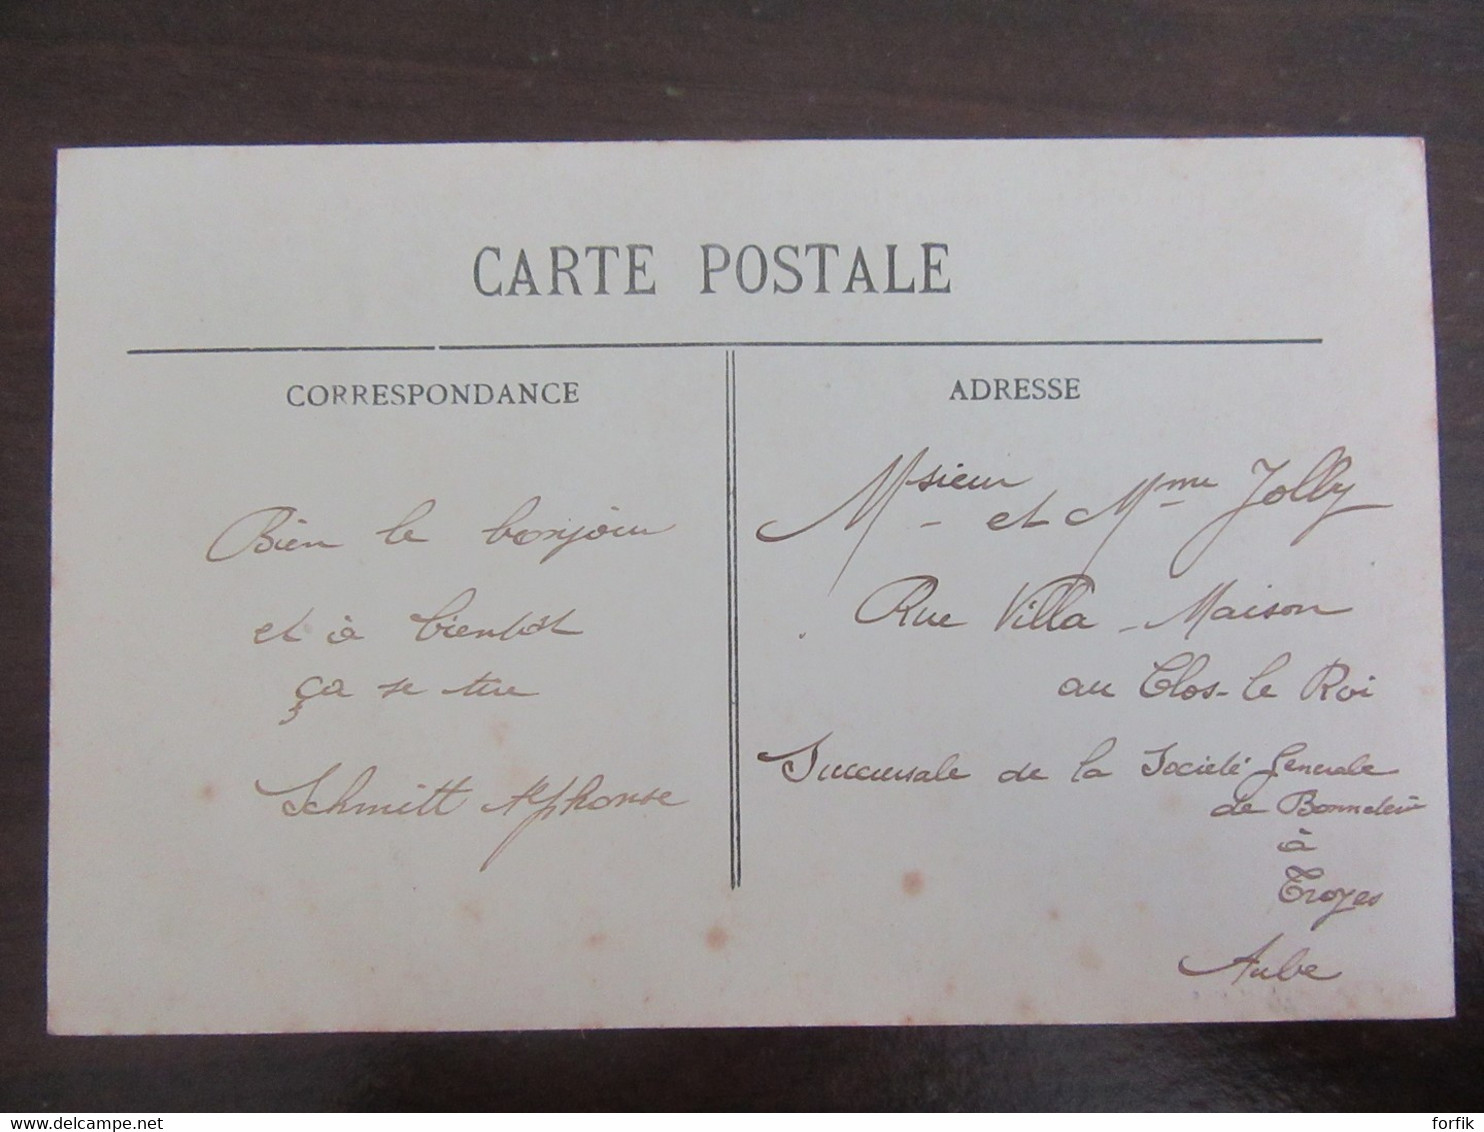 CARTE POSTALE
CORRESPONDANCE
Bien le bonjour
et à bientôt
ça se tire
Schmitt Alphonse
ADRESSE
Msieur et Mme Jolly
Rue Villa - Maison
au Clos-le Roi
Succursale de la Société Generale
de Bonneterie
à
Troyes
Aube
delcampe.net
forfik